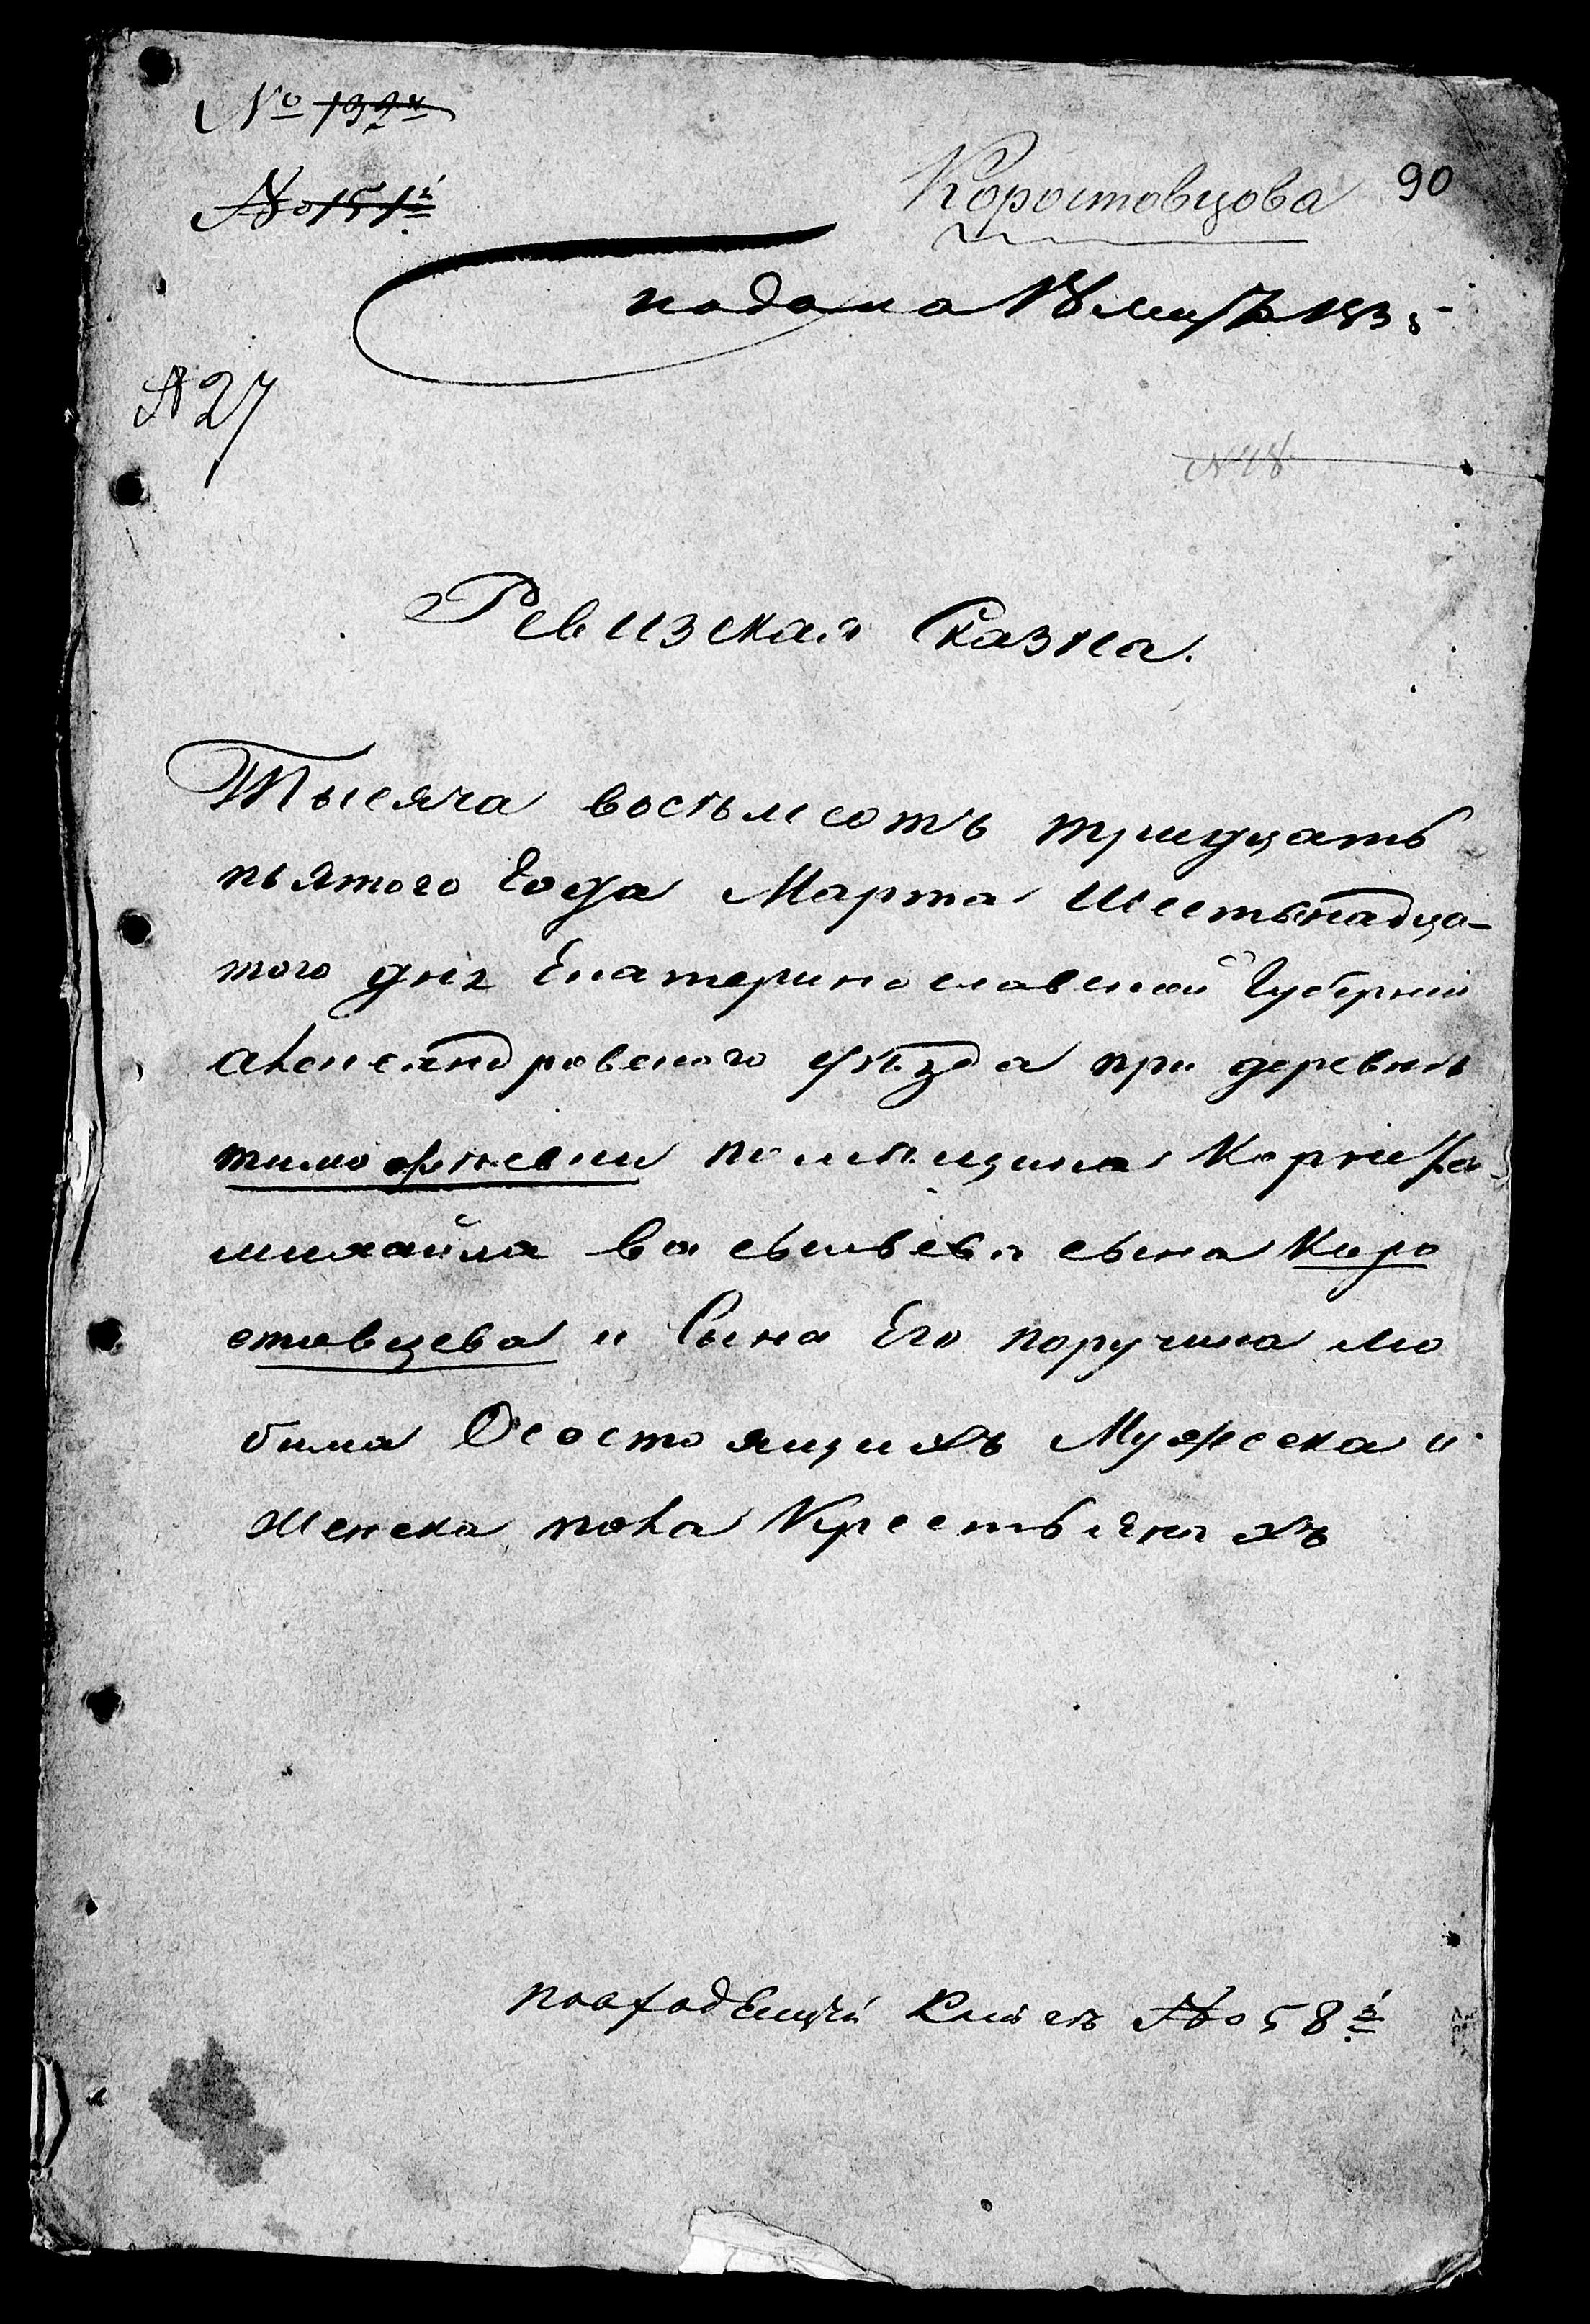 № 192й
№ 151й
Коростовцова 90
подана 18 мар 1835
№ 27
№ 28
Ревизская Сказка.
Тысяча восемьсотъ тридцать
пьятого Года Марта Шестьнадца-
того дня Екатеринославской Губерніи
александровского уѣзда при деревнѣ
тимофѣевки помѣщика Корнета
михайла васильева сына Каро
стовцева и Сына Его поручика
Осостоящихъ Мужеска и
женска пола Крестьянахъ
книгѣ № 58й